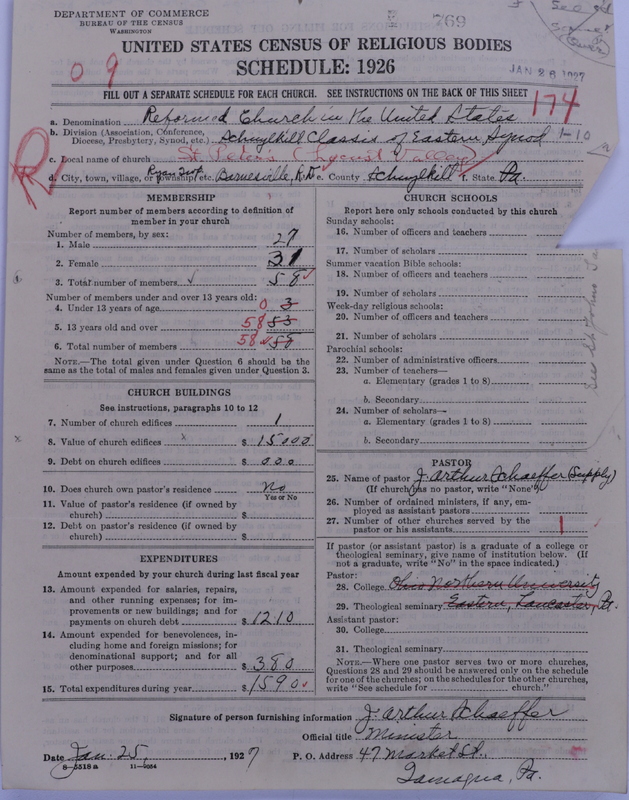 DEPARTMENT OF COMMERCE
BUREAU OF THE CENSUS
WASHINGTON
769
UNITED STATES CENSUS OF RELIGIOUS BODIES
SCHEDULE: 1926
0 9
JAN 26 1927
FILL OUT A SEPARATE SCHEDULE FOR EACH CHURCH. SEE INSTRUCTIONS ON THE BACK OF THIS SHEET
174
a. Denomination Reformed Church in the United States
b. Division (Association, Conference, Diocese, Presbytery, Synod, etc.) Schuylkill Classis of Eastern Synod 1-10
c. Local name of church St. Peters (Locust Valley)
R
d. City, town, village, or township etc. Ryan Twp. Barnesville, R.D. e. County Schuylkill f. State Pa.
MEMBERSHIP
Report number of members according to definition of member in your church
Number of members, by sex:
1. Male 27
2. Female 31
3. Total number of members 58
Number of members under and over 13 years old:
4. Under 13 years of age 0 3
5. 13 years old and over 58 53
6. Total number of members 58 58
NOTE.—The total given under Question 6 should be the same as the total of males and females given under Question 3.
CHURCH BUILDINGS
See instructions, paragraphs 10 to 12
7. Number of church edifices 1
8. Value of church edifices $ 15000
9. Debt on church edifices $ 000
10. Does church own pastor's residence No
Yes or No
11. Value of pastor's residence (if owned by church) $
12. Debt on pastor's residence (if owned by church) $
EXPENDITURES
Amount expended by your church during last fiscal year
13. Amount expended for salaries, repairs, and other running expenses; for improvements or new buildings; and for payments on church debt $ 1210
14. Amount expended for benevolences, including home and foreign missions; for denominational support; and for all other purposes $ 380
15. Total expenditures during year $ 1590
CHURCH SCHOOLS
Report here only schools conducted by this church
Sunday schools:
16. Number of officers and teachers
17. Number of scholars
Summer vacation Bible schools:
18. Number of officers and teachers
19. Number of scholars
Week-day religious schools:
20. Number of officers and teachers
21. Number of scholars
Parochial schools:
22. Number of administrative officers
23. Number of teachers—
a. Elementary (grades 1 to 8)
b. Secondary
24. Number of scholars—
a. Elementary (grades 1 to 8)
b. Secondary
PASTOR
25. Name of pastor J. Arthur Schaeffer (Supply)
(If church has no pastor, write "None")
26. Number of ordained ministers, if any, employed as assistant pastors
27. Number of other churches served by the pastor or his assistants 1
If pastor (or assistant pastor) is a graduate of a college or theological seminary, give name of institution below. (If not a graduate, write "No" in the space indicated.)
Pastor:
28. College Ohio Northern University
29. Theological seminary Eastern, Lancaster, Pa.
Assistant pastor:
30. College
31. Theological seminary
NOTE.—Where one pastor serves two or more churches, Questions 28 and 29 should be answered only on the schedule for one of the churches; on the schedules for the other churches, write "See schedule for church."
Signature of person furnishing information J. Arthur Schaeffer
Official title Minister
Date Jan. 25, 1927
P. O. Address 47 Market St.,
Tamaqua, Pa.
8—5518 a 11—9054